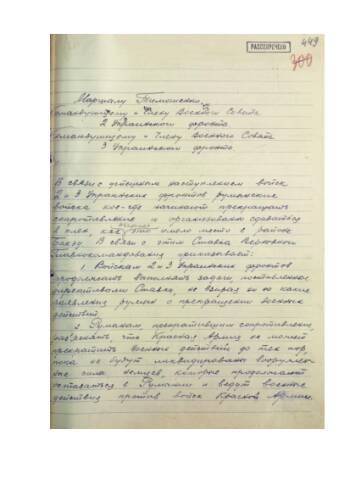 РАССЕКРЕЧЕНО
449
300
Маршалу Тимошенко,
Командующему и Члену Военного Совета
2 Украинского фронта
Командующему и Члену Военного Совета
3 Украинского фронта
В связи с успешным наступлением войск
2 и 3 Украинских фронтов румынские
войска кое-где начинают прекращать
сопротивление и организованно сдаваться
в плен, как это имело место в районе
Бакэу. В связи с этим Ставка Верховного
Главнокомандования приказывает:
1. Войскам 2 и 3 Украинских фронтов
продолжать выполнять задачи, поставленные
директивами Ставки, не взирая ни на какие
заявления румын о прекращении военных
действий.
2. Румынам прекратившим сопротивление,
что Красная Армия не может
прекратить военных действий до тех пор,
пока не будут ликвидированы вооружен-
ные силы немцев, которые продолжают
оставаться в Румынии и ведут военные
действия против войск Красной Армии.